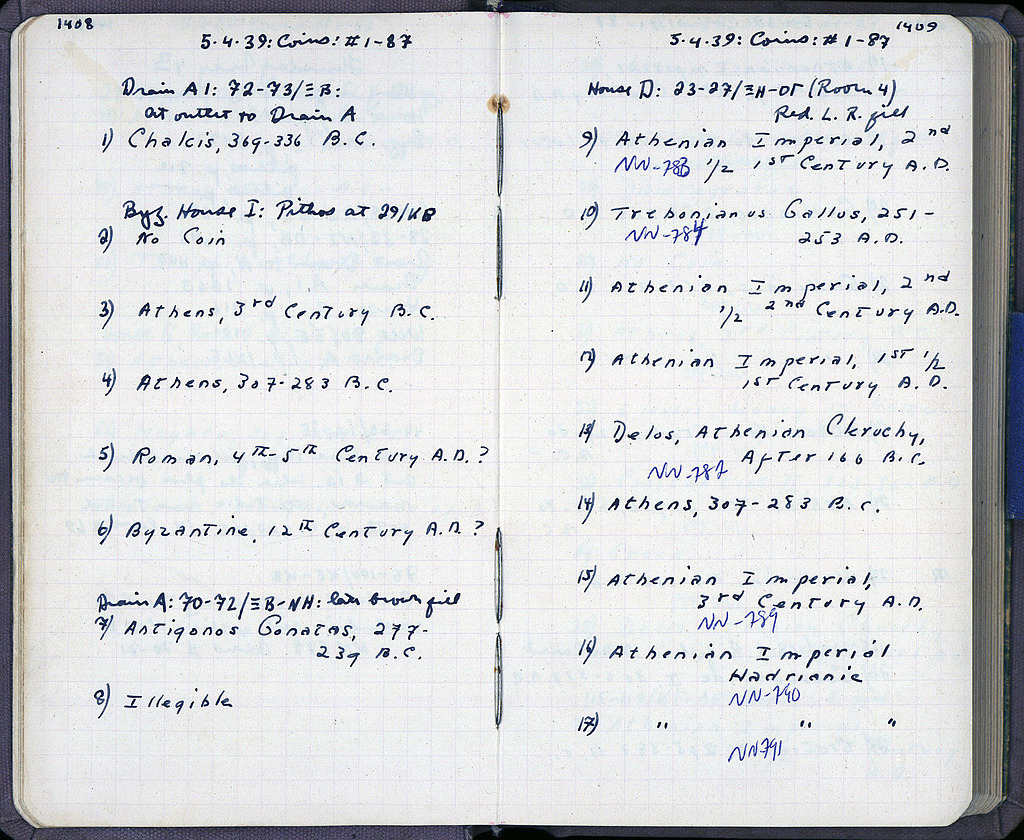 1408
5.4.39: Coins: #1-87
Drain A1: 72-73/ΞB:
at outlet to Drain A
1) Chalcis, 369-336 B.C.
Byz. House I: Pithos at 29/KB
2) No Coin
3) Athens, 3rd Century B.C.
4) Athens, 307-283 B.C.
5) Roman, 4th-5th Century A.D.?
6) Byzantine, 12th Century A.D.?
Drain A: 70-72/ΞB-NH: late brown fill
7) Antigonos Gonatas, 277-
239 B.C.
8) Illegible
1409
5.4.39: Coins: #1-87
House D: 23-27/ΞH-OΓ (Room 4)
Red. L. R. fill
9) Athenian Imperial, 2nd
NN-783 1/2 1st Century A.D.
10) Trebonianus Gallus, 251-
NN-784 253 A.D.
11) Athenian Imperial, 2nd
1/2 2nd Century A.D.
12) Athenian Imperial, 1st 1/2
1st Century A.D.
13) Delos, Athenian Cleruchy,
After 166 B.C.
NN-787
14) Athens, 307-283 B.C.
15) Athenian Imperial,
3rd Century A.D.
NN-789
16) Athenian Imperial
Hadrianic
NN-790
17) " " "
NN791